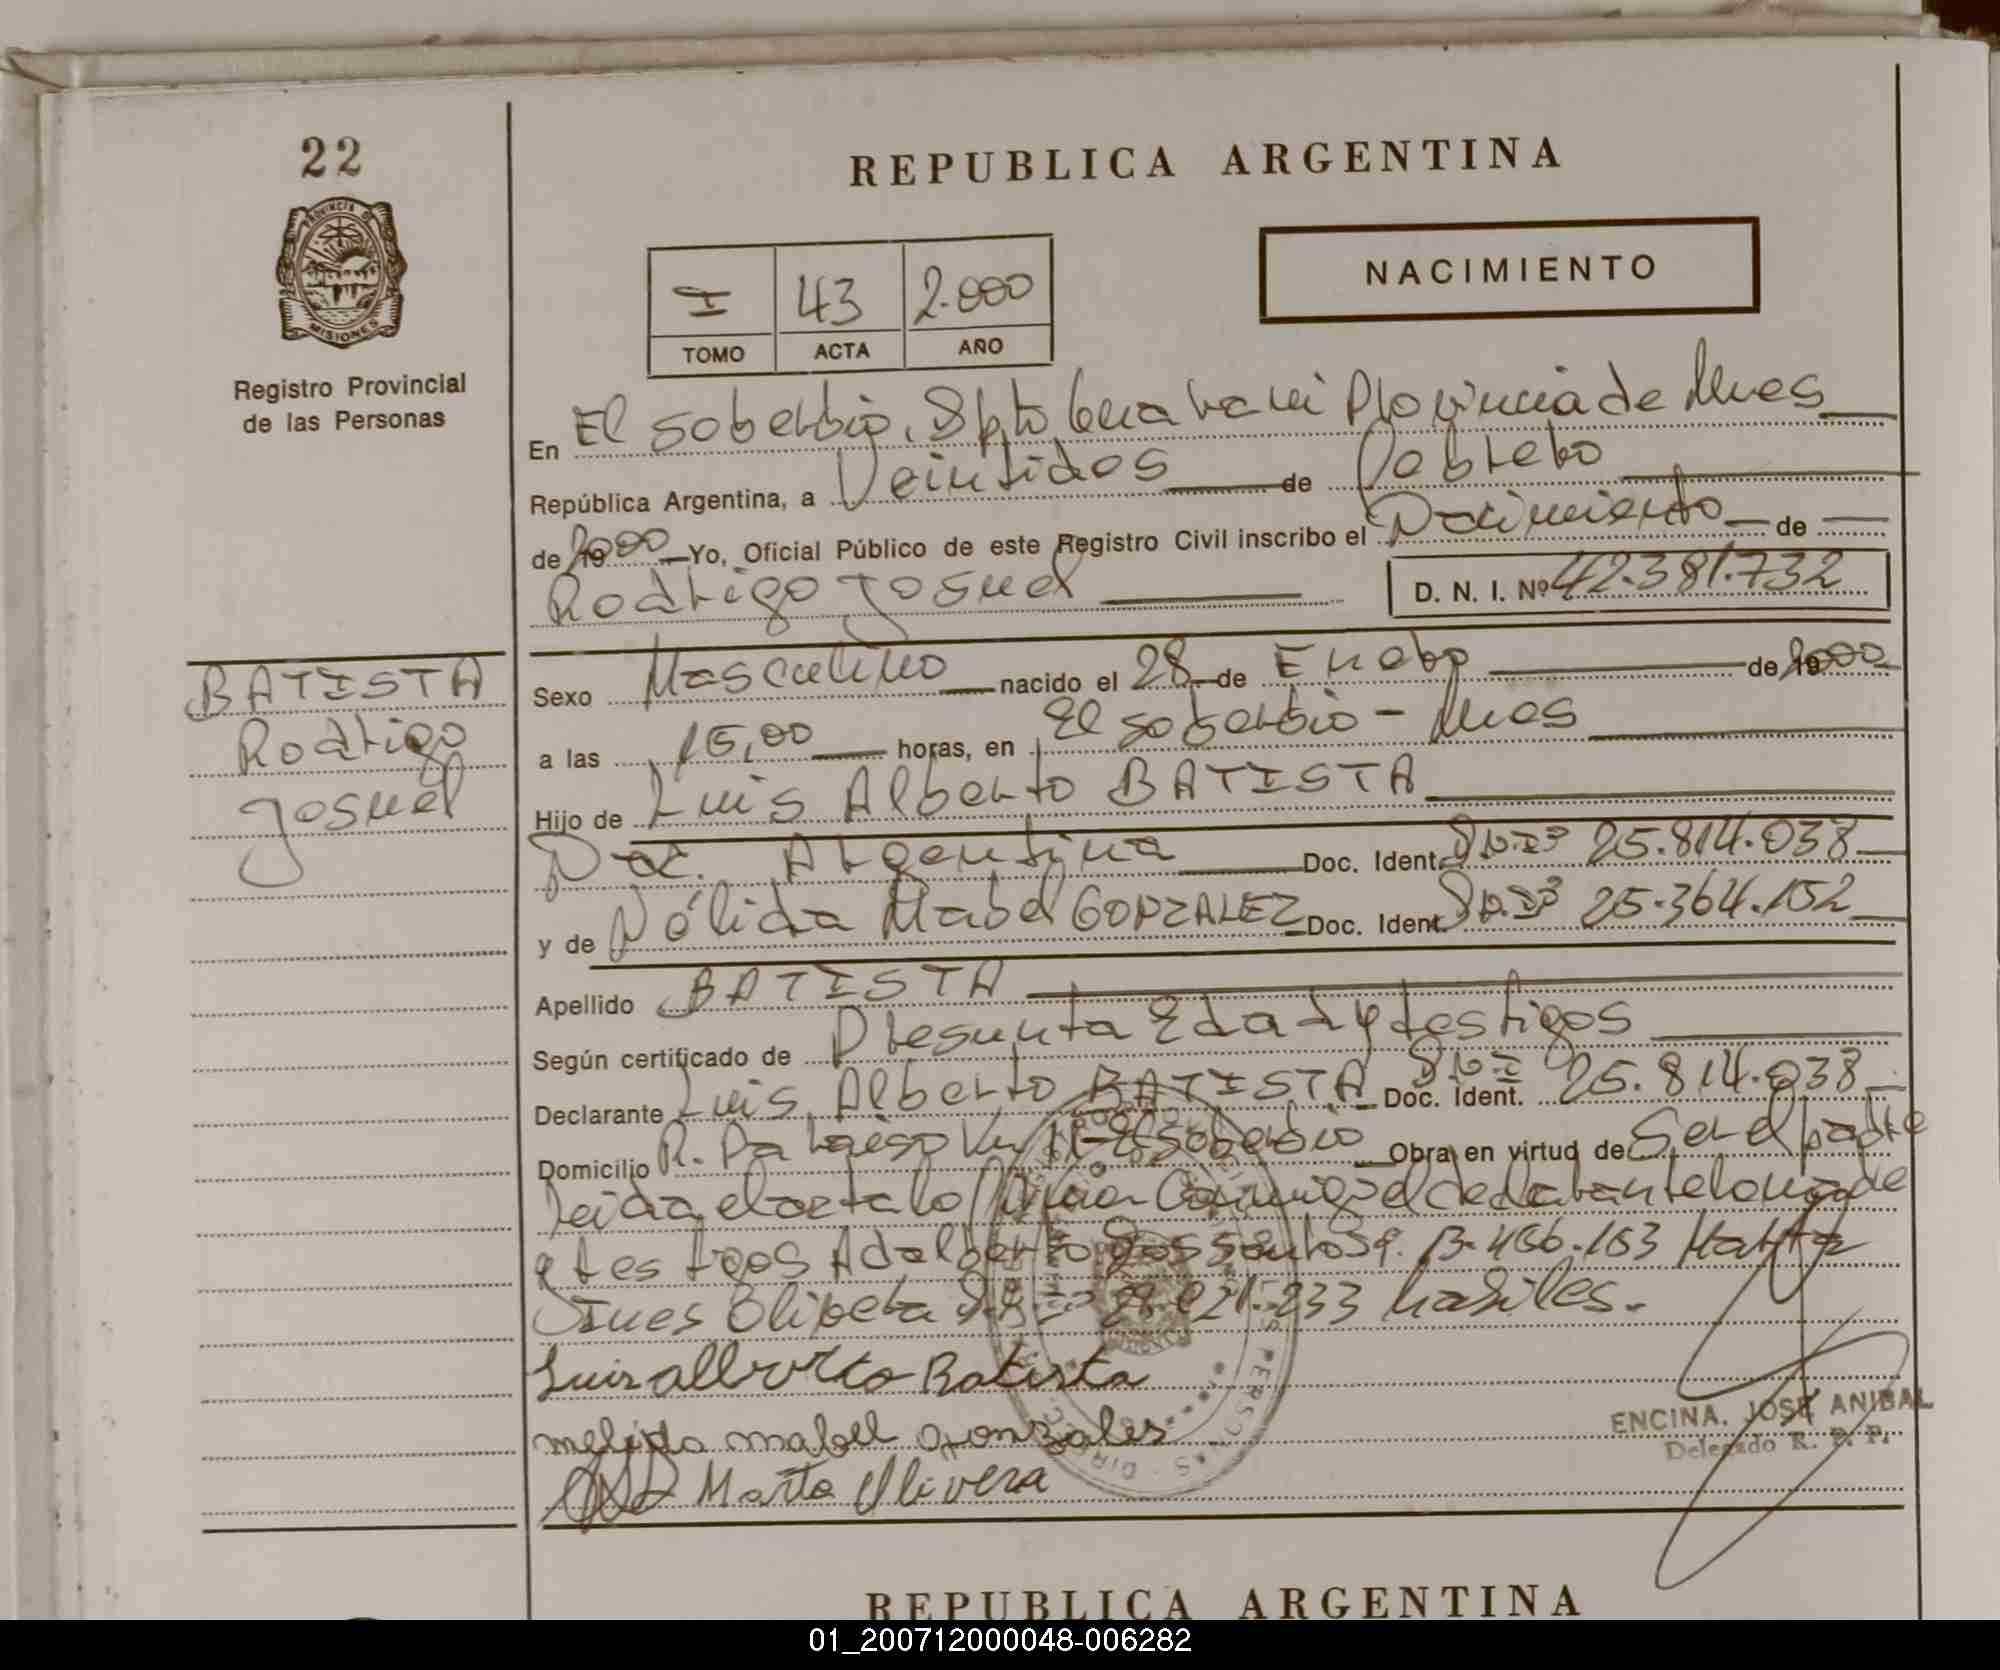 22
REPUBLICA ARGENTINA
PROVINCIA DE
MISIONES
Registro Provincial
de las Personas
NACIMIENTO
I 43 2.000
TOMO ACTA AÑO
En El soberbio, Dpto Guarani Provincia de Mnes
República Argentina, a Veintidos de Febrero
de 2000 Yo, Oficial Público de este Registro Civil inscribo el Nacimiento de
Rodrigo Josuel D. N. I. Nº 42.381.732
BATISTA
Rodrigo
Josuel
Sexo Masculino nacido el 28 de Enero de 2000
a las 15,00 horas, en El soberbio - Mnes
Hijo de Luis Alberto BATISTA
Nac. Argentina Doc. Ident. DNI 25.814.038
y de Nélida Mabel GONZALEZ Doc. Ident. DNI 25.364.152
Apellido BATISTA
Según certificado de Presunta Edad y testigos
Declarante Luis Alberto BATISTA Doc. Ident. DNI 25.814.038
Domicilio R. Paraiso Km El soberbio Obra en virtud de Ser el padre
Leida el acta lo firman conmigo el declarante la madre
y testigos Adalberto Dos santos 13.456.153 Marta
Ines Olivera DNI 233 habiles.
Luis alberto Batista
nelida mabel gonzales
Marta Olivera
ENCINA, JOSE ANIBAL
Delegado R. P. P.
REPUBLICA ARGENTINA
01_200712000048-006282